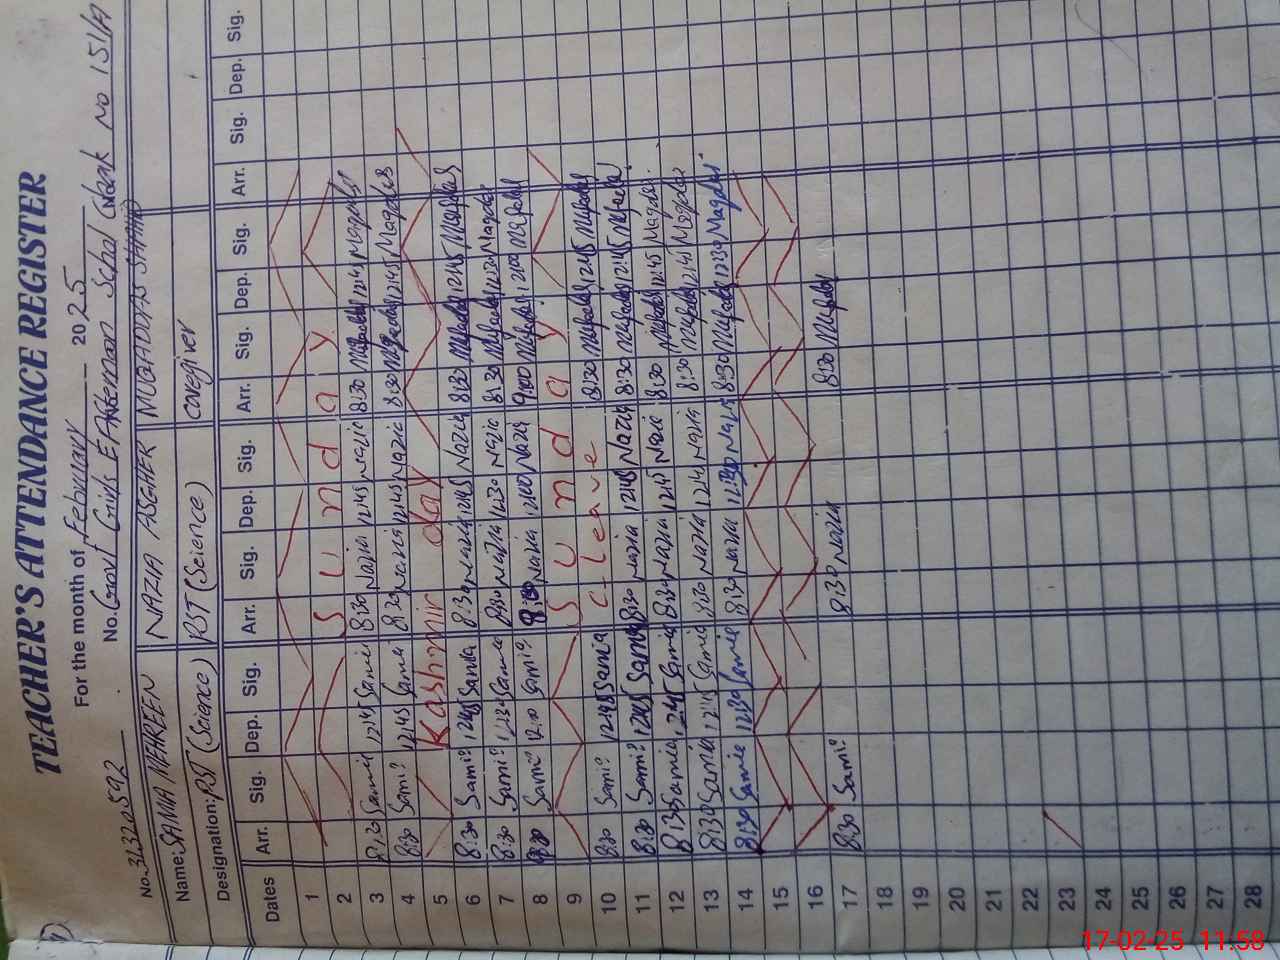 TEACHER'S ATTENDANCE REGISTER
For the month of Feburary 2025
No. 31320592 No. Govt Girls E/ School Chak No 151/A
Name: SAMIA MEHREEN NAZIA ASGHER MUQADDAS SHAHID
Designation: PST (Science) PST (Science) caregiver
Dates Arr. Sig. Dep. Sig. Arr. Sig. Dep. Sig. Arr. Sig. Dep. Sig. Arr. Sig. Dep. Sig.
1
2 S u n d a y
3 8:30 Samia 12:45 Samia 8:30 Nazia 12:45 Nazia 8:30 12:45
4 8:30 Samia 12:45 Samia 8:30 Nazia 12:45 Nazia 8:30 12:45
5 Kashmir day
6 8:30 Samia 12:45 Samia 8:30 Nazia 12:45 Nazia 8:30 12:45
7 8:30 Samia 12:30 Samia 8:30 Nazia 12:30 Nazia 8:30 12:30
8 Samia 12:00 Samia Nazia 12:00 Nazia 9:00 12:00
9 S u n d a y
10 8:30 Samia 12:45 Samia c-leave 8:30 12:45
11 8:30 Samia 12:45 Samia 8:30 Nazia 12:45 Nazia 8:30 12:45
12 8:30 Samia 12:45 Samia 8:30 Nazia 12:45 Nazia 8:30 12:45
13 8:30 Samia 12:45 Samia 8:30 Nazia 12:45 Nazia 8:30 12:45
14 8:30 Samia 12:30 Samia 8:30 Nazia 12:30 Nazia 8:30 12:30
15
16
17 8:30 Samia 8:30 Nazia 8:30
18
19
20
21
22
23
24
25
26
27
28
17-02-25 11:58